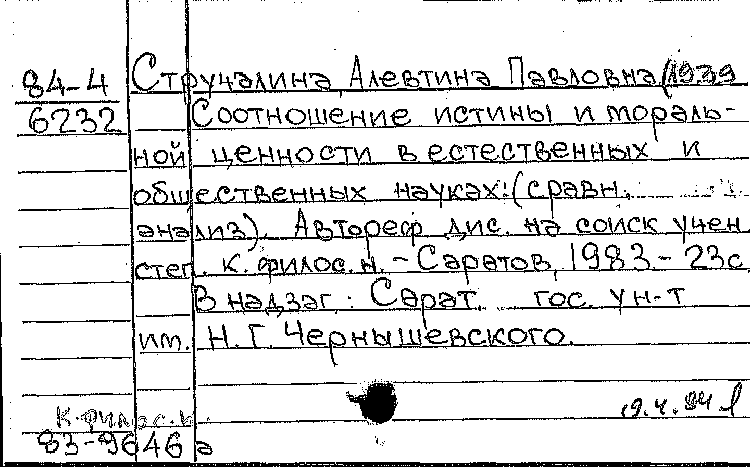 84-4
6232
Стручалина, Алевтина Павловна (1939
Соотношение истины и мораль-
ной ценности в естественных и
общественных науках: (сравн.
анализ). Автореф. дис. на соиск учен
степ. к. филос. н. - Саратов, 1983. - 23с
В надзаг.: Сарат. гос. ун-т
им. Н. Г. Чернышевского.
К. филос. н.
83-9646а